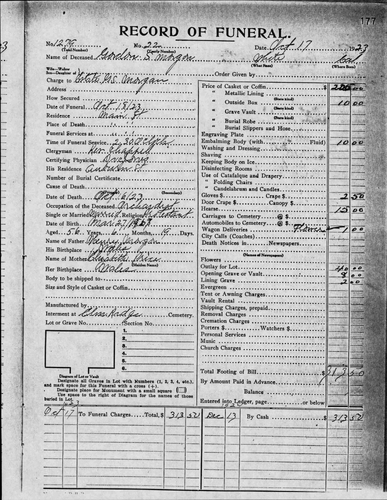 177
RECORD OF FUNERAL.
No. 1275 No. 22 Date Oct 17 1923
(Total Number) (Yearly Number)
Name of Deceased Gordon S. Morgan White Cal
(What Race) (Where Born)
Charge to Order Given by
Address
How Secured
Date of Funeral Oct 18/23
Residence Main St
Place of Death
Funeral Services at
Time of Funeral Service
Clergyman Rev. Chappell
Certifying Physician
His Residence
Number of Burial Certificate
Cause of Death
Date of Death Oct 16/23
Occupation of the Deceased Orchardist
Single or Married Married Religion Protestant
Date of Birth Mar 27
Aged 56 Years 6 Months 19 Days
Name of Father Henry Morgan
His Birthplace
Name of Mother Elizabeth
(Maiden Name)
Her Birthplace Wales
Body to be shipped to
Size and Style of Casket or Coffin.
Manufactured by
Interment at Cemetery.
Lot or Grave No. Section No.
Diagram of Lot or Vault
Designate all Graves in Lot with Numbers (1, 2, 3, 4, etc.), and mark space for this Funeral with a cross (+).
Designate place for Monument with a small square
Use space to the right of Diagram for the names of those buried in Lot.
Price of Casket or Coffin $ 200 00
Metallic Lining
(State kind)
Outside Box 10 00
(State kind)
Grave Vault
(State kind)
Burial Robe
(State kind)
Burial Slippers and Hose
Engraving Plate
Embalming Body (with Fluid) 10 00
Washing and Dressing
Shaving
Keeping Body on Ice
Disinfecting Rooms
Use of Catafalque and Drapery
" Folding Chairs
" Candelabrum and Candles
Gloves $ Crape $ 2 50
Door Crape $ Candy $
Hearse 15 00
Carriages to Cemetery @ $
Automobiles to Cemetery @ $
Wagon Deliveries Flowers 1 00
City Calls (Coaches)
Death Notices in Newspapers
(Names of Newspapers)
Flowers
Outlay for Lot 40 00
Opening Grave or Vault 8 00
Lining Grave 2 00
Evergreen
Tent or Awning Charges
Vault Rental
Shipping Charges, prepaid
Removal Charges
Cremation Charges
Porters $ Watchers $
Personal Services
Music
Church Charges
Total Footing of Bill $ 313 50
By Amount Paid in Advance
Balance
Entered into Ledger, page or below.
Oct 17 To Funeral Charges Total, $ 313 50 Dec 13 By Cash $ 313 50